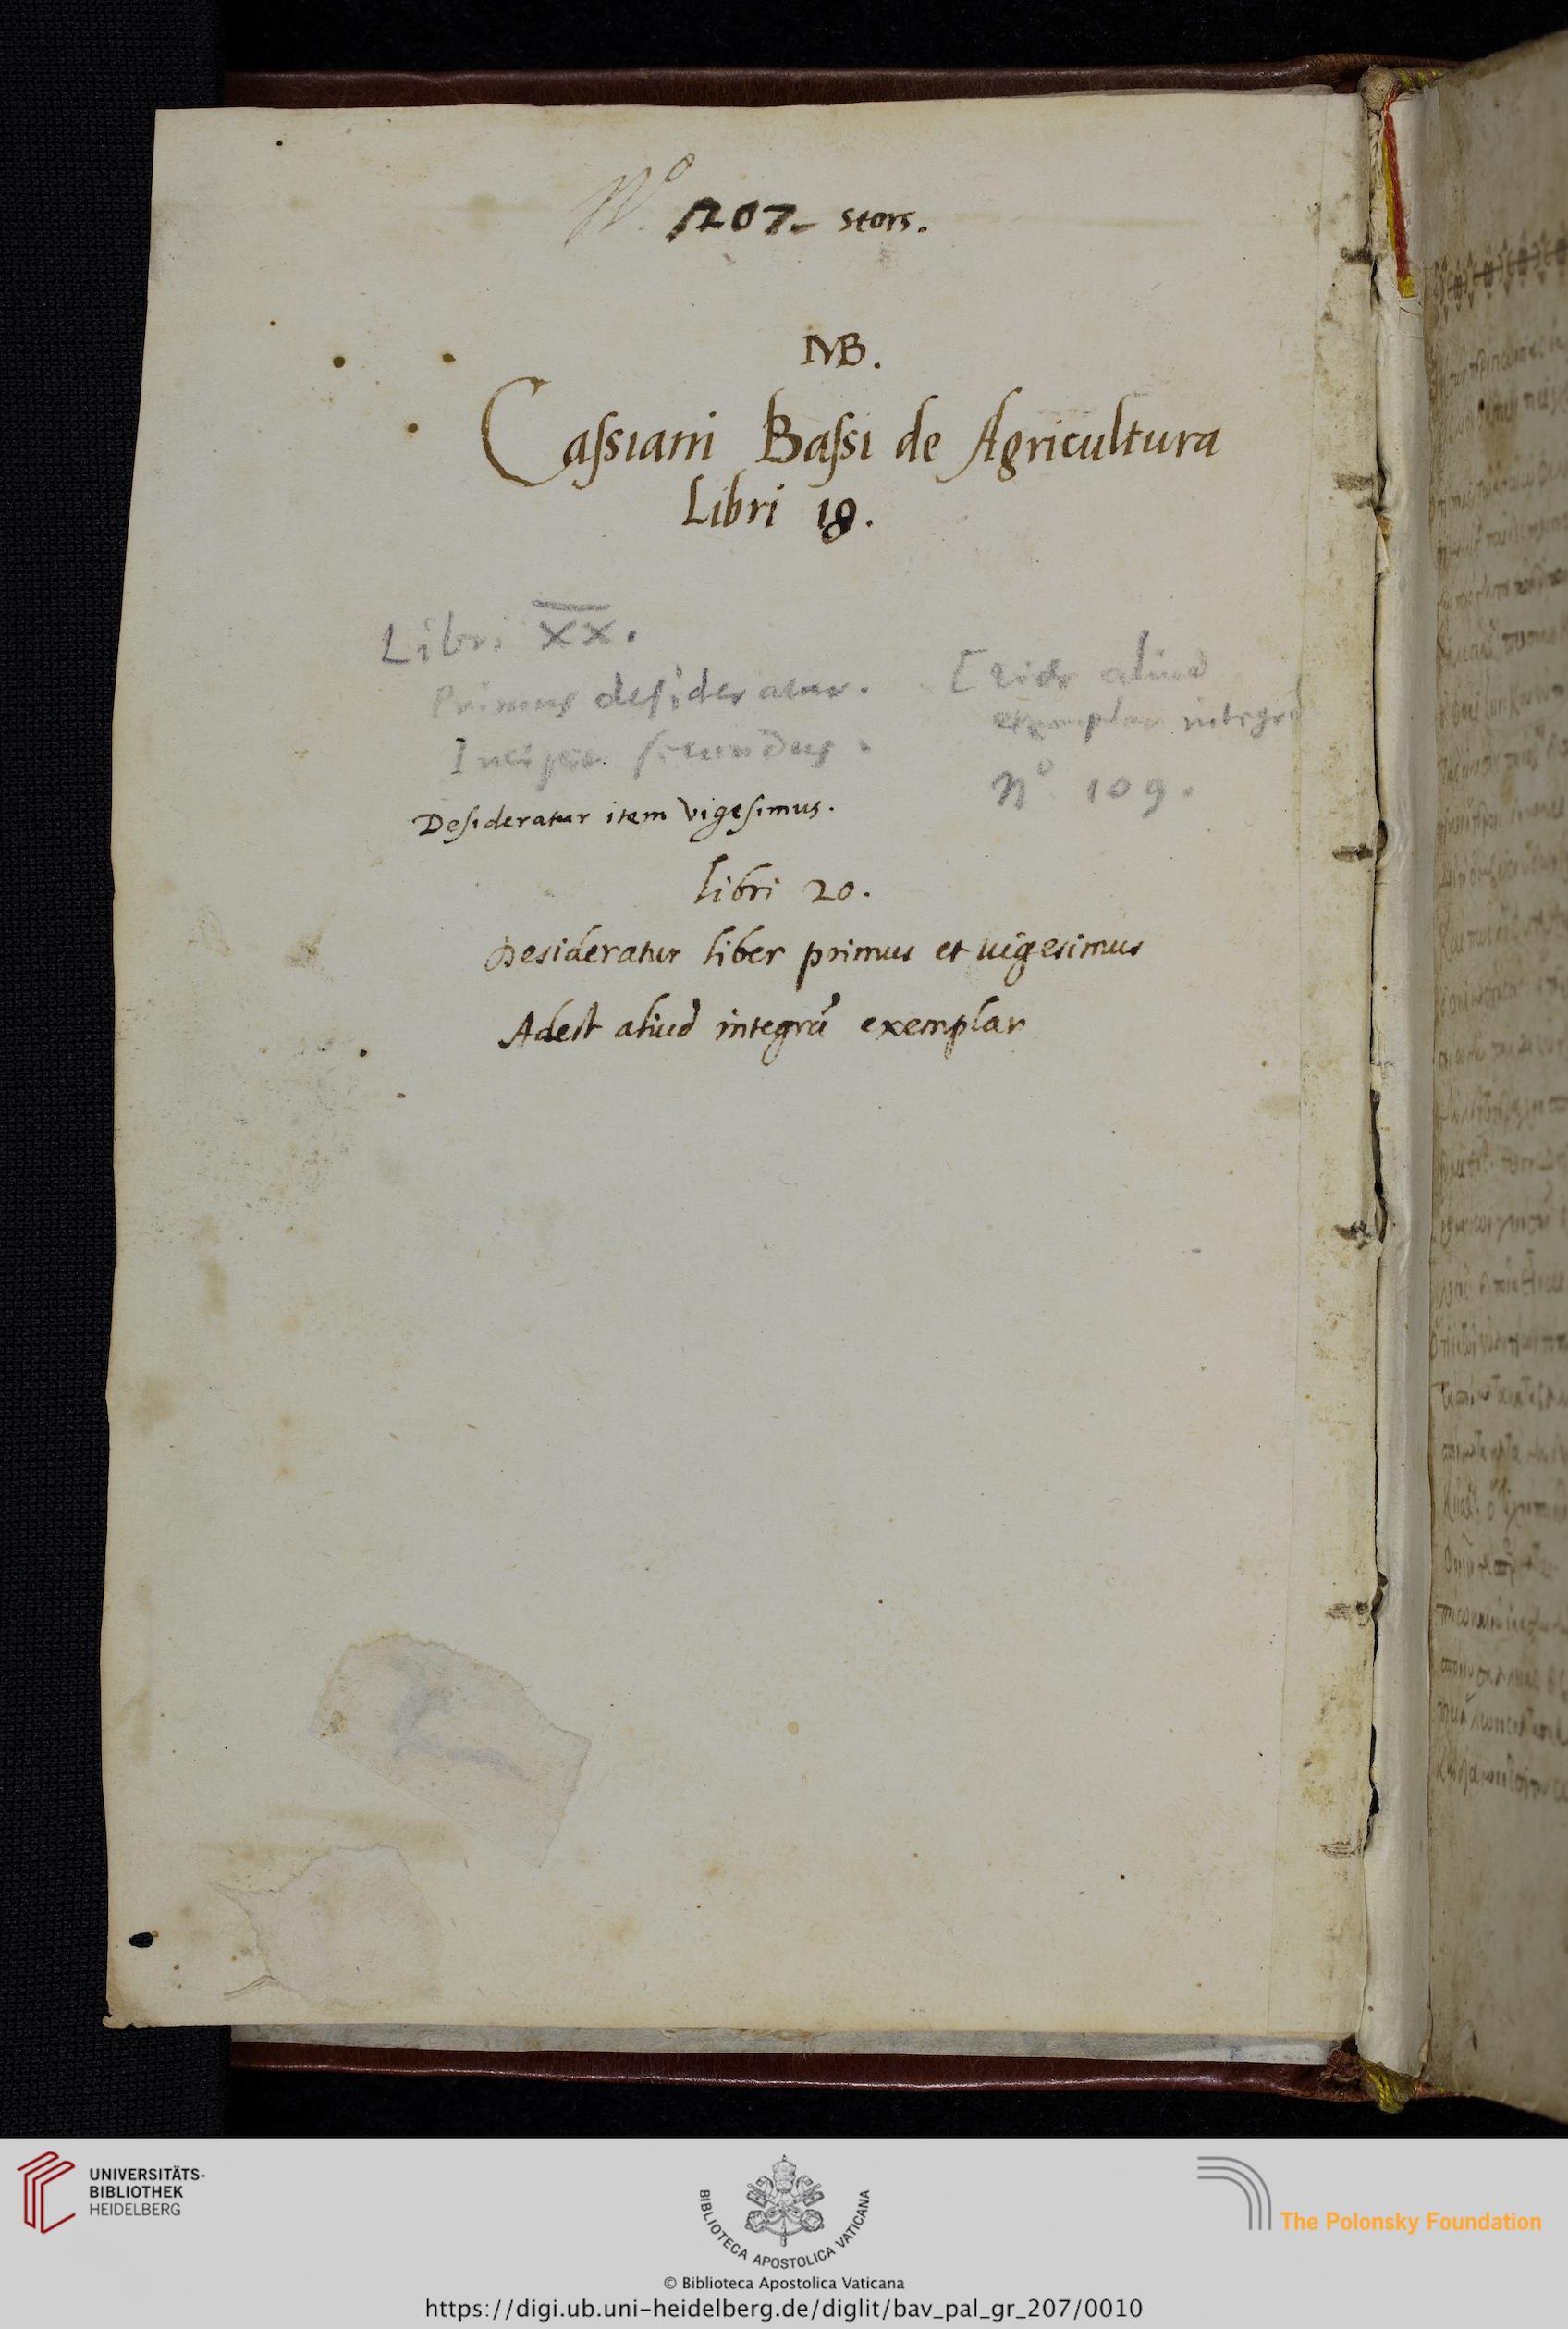 N.º 1207- stors.
NB.
Caſsiani Baſsi de Agricultura
Libri 18.
Libri XX.
Primus deſideratur.
Incipit ſecundus.
[vide aliud
exemplar integrũ
Nº 109.
Deſideratur item vigeſimus.
libri 20.
Desideratur liber primus et uigesimus
Adest aliud integrũ exemplar
UNIVERSITÄTS-
BIBLIOTHEK
HEIDELBERG
BIBLIOTECA APOSTOLICA VATICANA
The Polonsky Foundation
© Biblioteca Apostolica Vaticana
https://digi.ub.uni-heidelberg.de/diglit/bav_pal_gr_207/0010